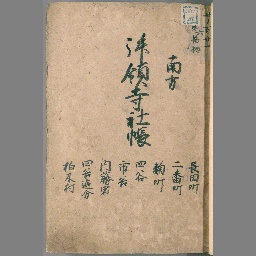 南方
朱領寺社帳
長田町
二番町
麹町
四谷
市谷
内藤宿
四谷追分
柏木村